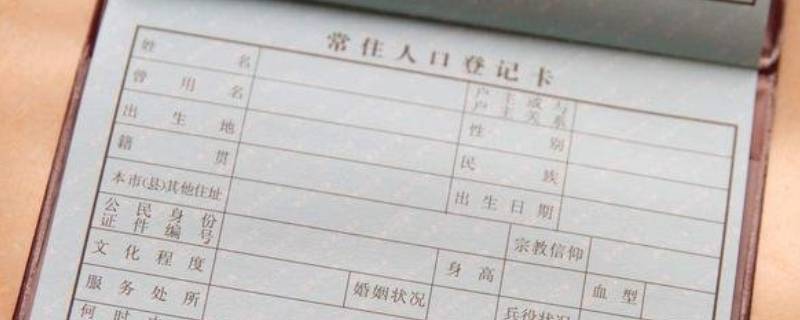 常住人口登记卡
姓名 户主或与户主关系
曾用名 性别
出生地 民族
籍贯 出生日期
本市(县)其他住址 宗教信仰
公民身份证件编号 身高 血型
文化程度 婚姻状况 兵役状况
服务处所
何时